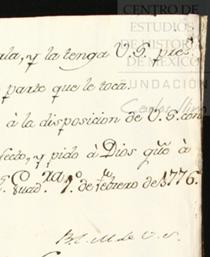 CENTRO DE
ESTUDIOS
DE HISTORIA
DE MÉXICO
FUNDACIÓN
ala, y la tenga V.S. pres
parte que le toca.
à la disposicion de V.S. con
fecto, y pido à Dios que à
Guad.xa 1.º de febrero de 1776.
B. L. M. de V. S.